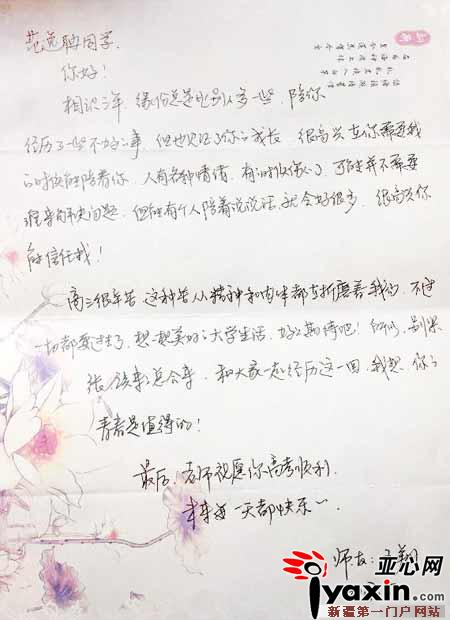 范逸聘同学:
你好!
相识三年,缘份总是比别人多一些,陪你
经历了一些不好的事,但也见证了你的成长,很高兴在你需要我
的时候能陪着你,人有各种情绪,有时候伤心了,可能并不需要
谁来解决问题,但能有个人陪着说说话,就会好很多,很高兴你
能信任我!
高三很辛苦,这种苦从精神和肉体都在折磨着我们,不过
一切都要过去了,想一想美好的大学生活,好好期待吧!所以,别
张,该来的总会来,和大家一起经历这一回,我想,你的
青春是值得的!
最后,老师祝愿你高考顺利,
未来每一天都快乐~.
师友:王翔
亚心网
iyaxin.com
新疆第一门户网站